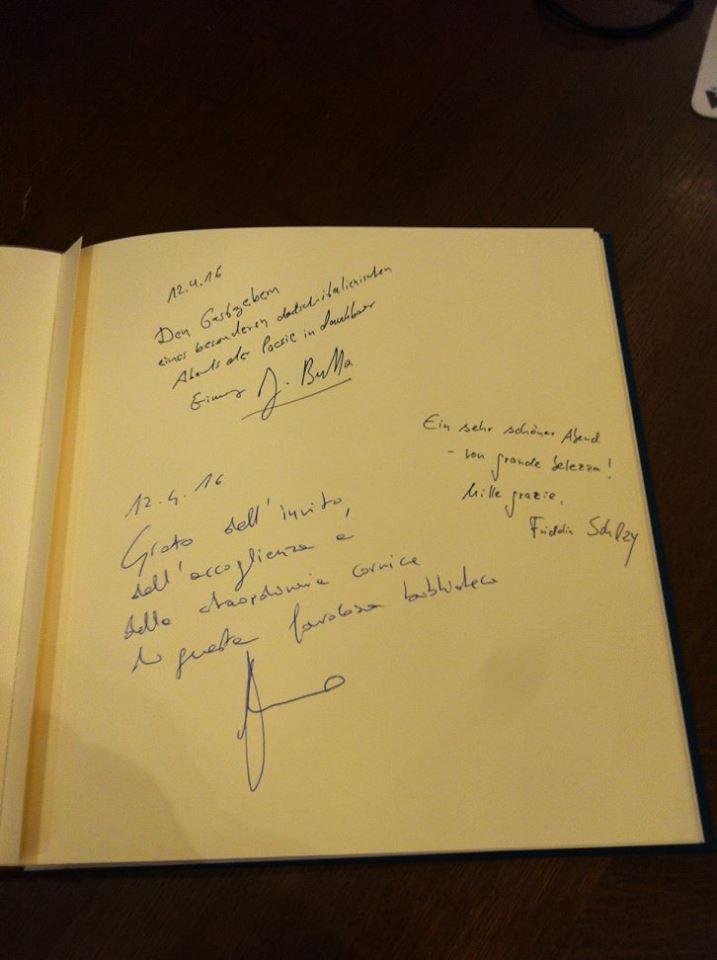 12.4.16
Den Gastgebern
eines besonderen deutschitalienischen
Abends der Poesie in dankbarer
J. Bulla
Ein sehr schöner Abend
- von grande belezza!
Mille grazie,
12.4.16
Grato dell'invito,
dell'accoglienza e
della straordinaria cornice
di questa favolosa biblioteca